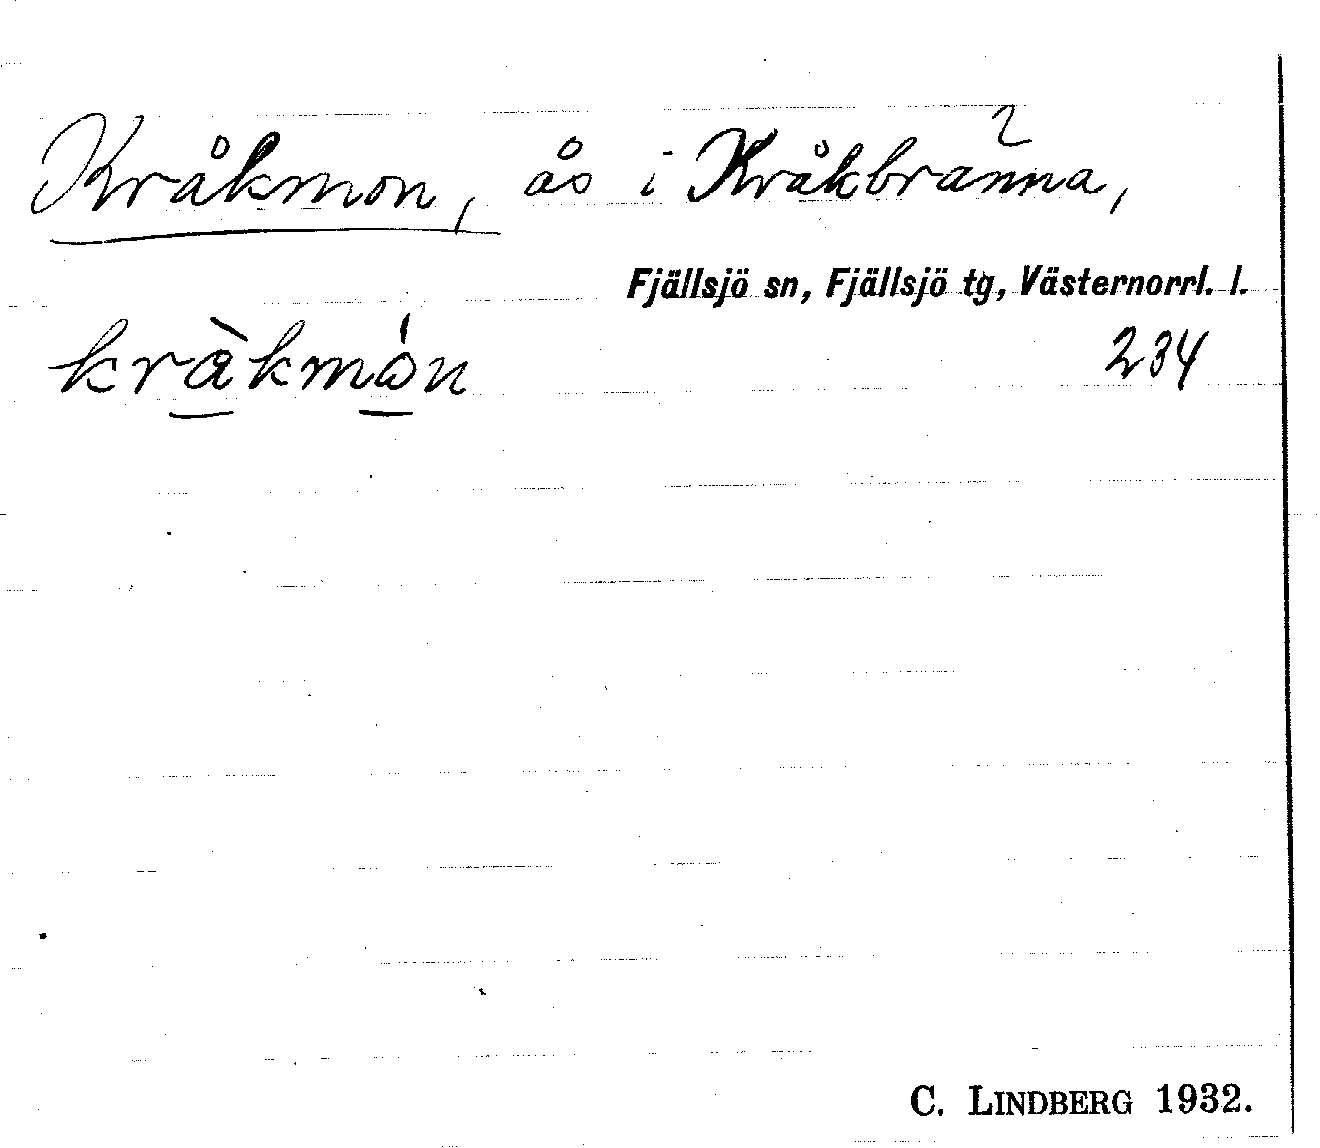 Kråkmon, ås i Kråkbränna,²
Fjällsjö sn, Fjällsjö tg, Västernorrl. l.
kràkmón 234
C. LINDBERG 1932.